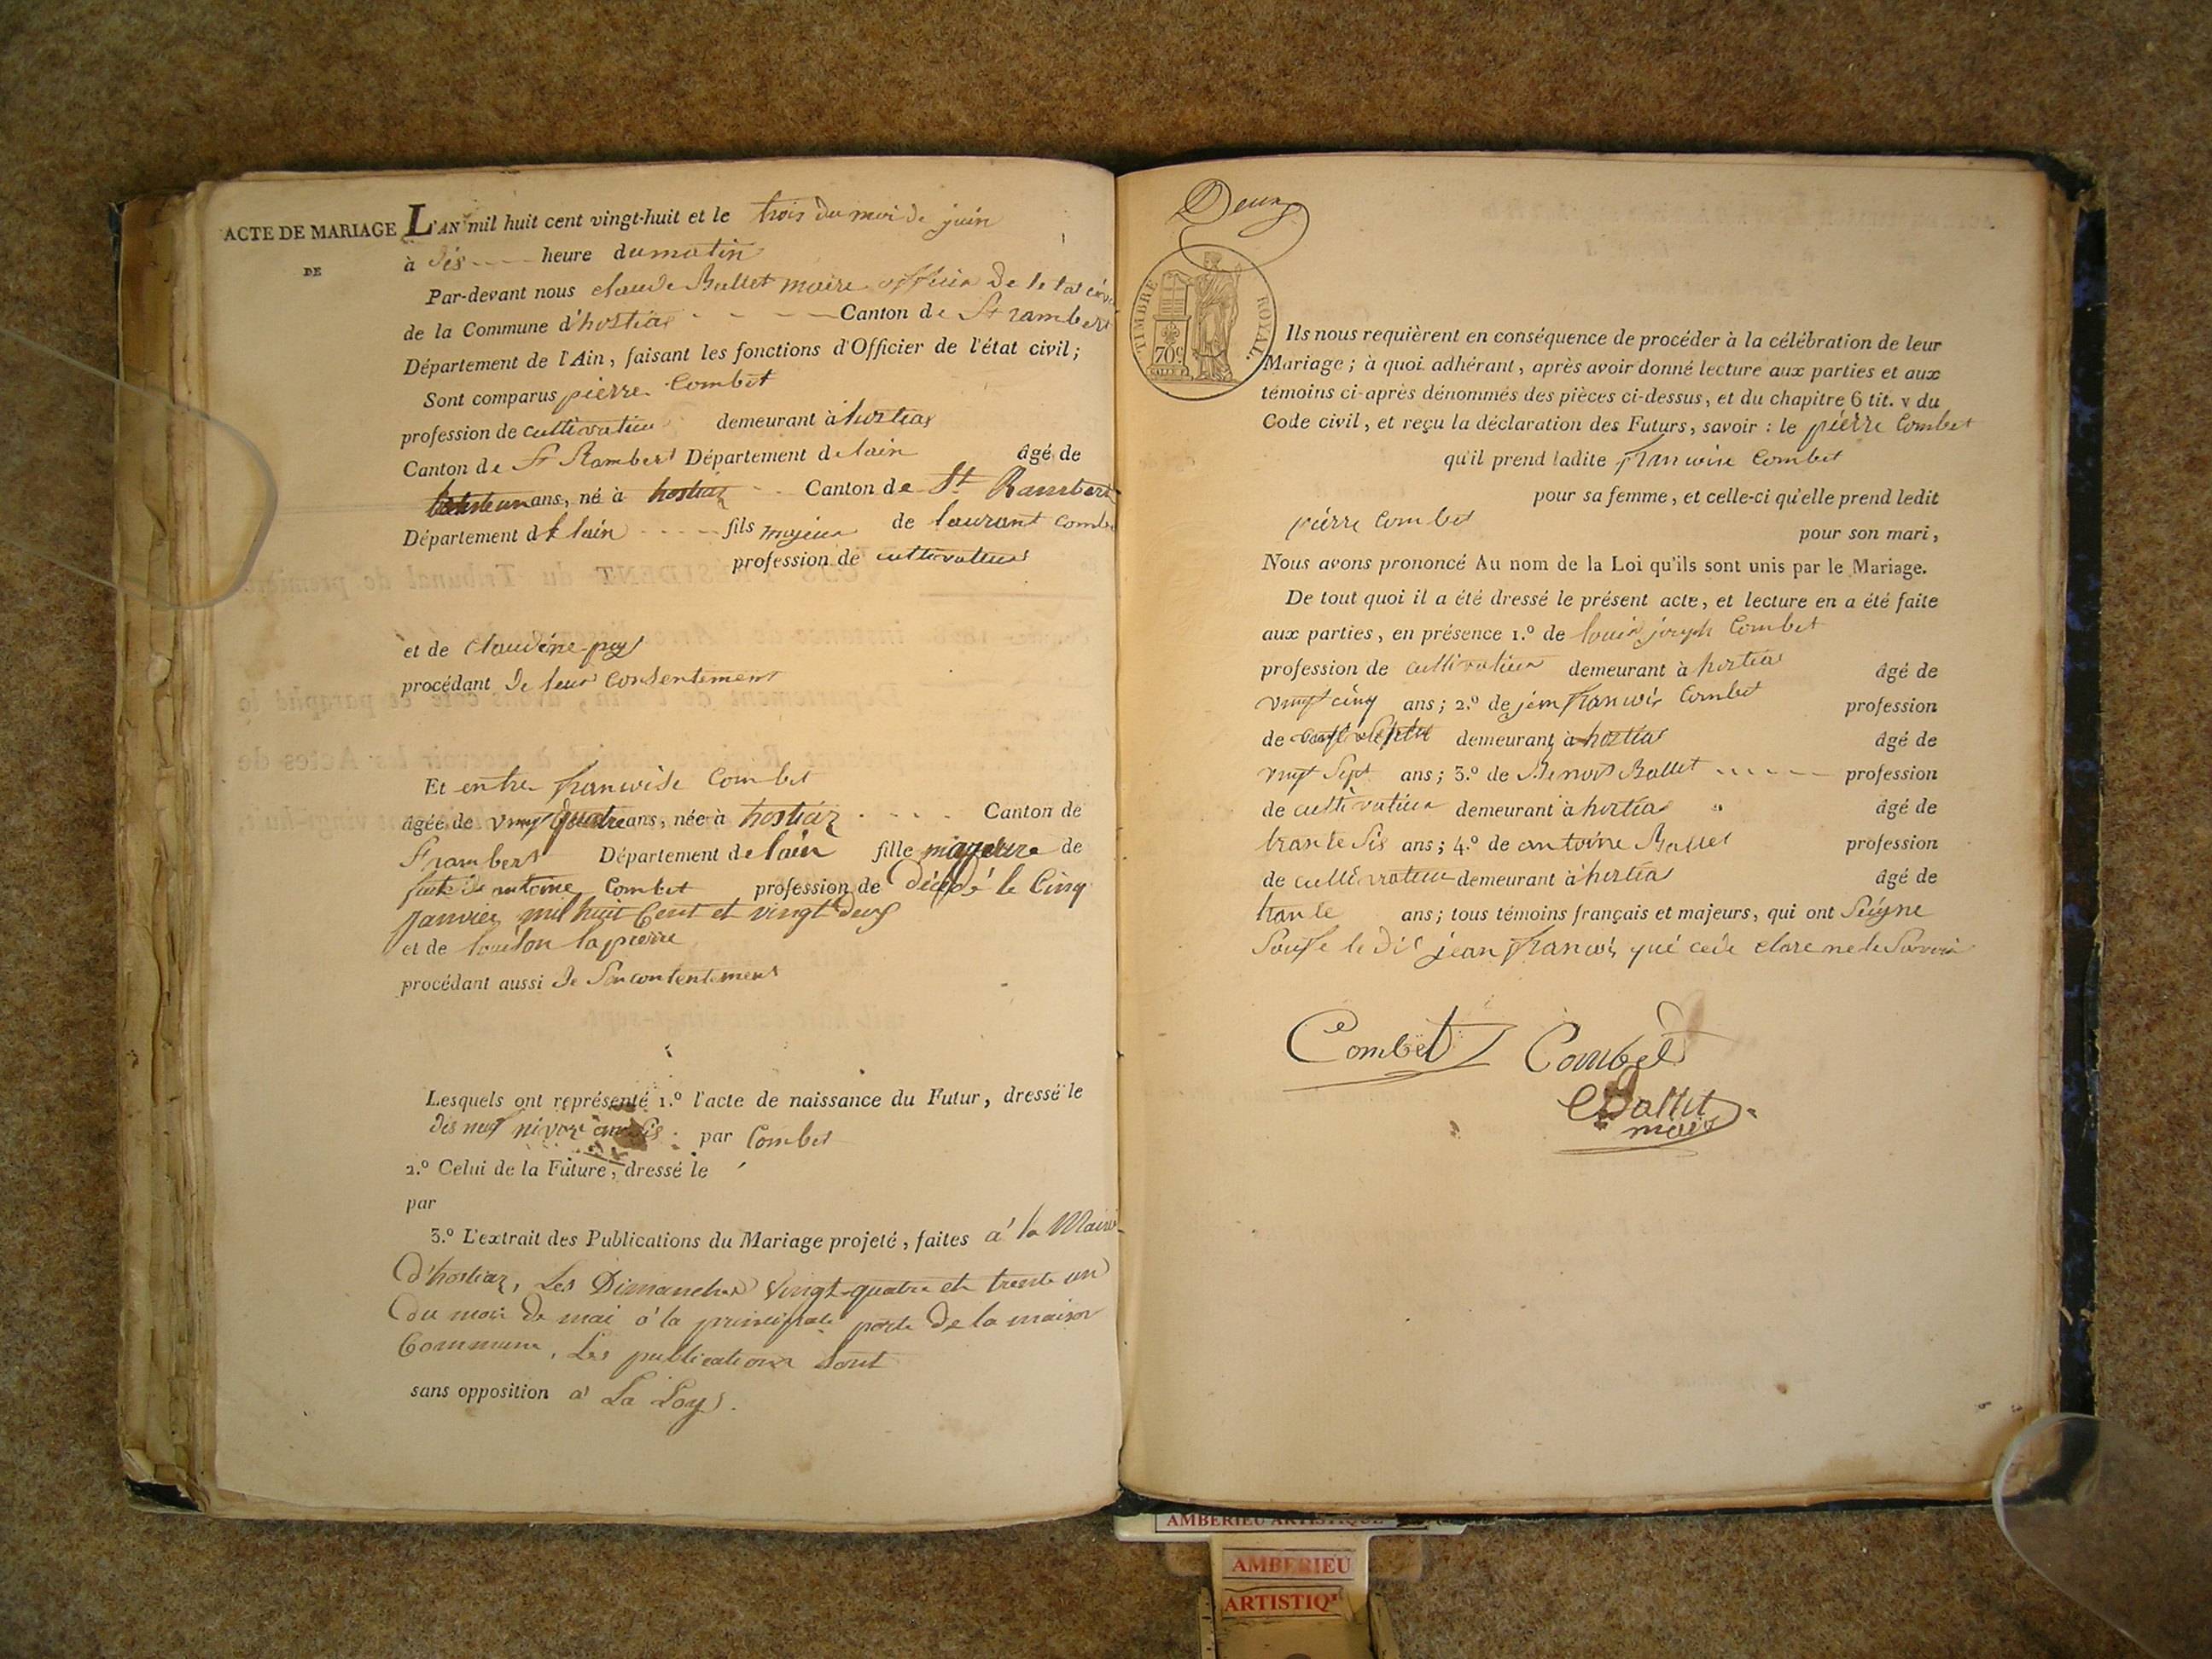 ACTE DE MARIAGE
DE
L'AN mil huit cent vingt-huit et le trois du moi de juin
à dis heure du matin
Par-devant nous claude Ballet maire officier de le tat civi
de la Commune d'hostiaz Canton de St rambert
Département de l'Ain, faisant les fonctions d'Officier de l'état civil;
Sont comparus pierre Combet
profession de cultivateur demeurant à hostiaz
Canton de St Rambert Département de lain âgé de
ans, né à hostiaz Canton de St Rambert
Département de lain fils majeur de laurant Combe
profession de cultivateur
et de Claudine puy
procédant de leur Consentement
Et entre franwise Combet
âgée de vingt quatre ans, née à hostiaz Canton de
St rambert Département de lain fille mageure de
antoine Combet profession de décédé le Cinq
janvier mil huit Cent et vingt deux
et de louison lapierre
procédant aussi de Son contentement
Lesquels ont représenté 1.º l'acte de naissance du Futur, dressé le
dis neuf nivoze par Combet
2.º Celui de la Future, dressé le
par
3.º L'extrait des Publications du Mariage projeté, faites à la Mairie
D'hostiaz, Les Dimanches vingt-quatre et trente un
du mois de mai à la principale porte de la maison
Commune, Les publications Sont
sans opposition à La Loy.
Deux
TIMBRE ROYAL.
70c
Ils nous requièrent en conséquence de procéder à la célébration de leur
Mariage; à quoi adhérant, après avoir donné lecture aux parties et aux
témoins ci-après dénommés des pièces ci-dessus, et du chapitre 6 tit. v du
Code civil, et reçu la déclaration des Futurs, savoir: le pierre Combet
qu'il prend ladite franwise Combet
pour sa femme, et celle-ci qu'elle prend ledit
pierre Combet
pour son mari,
Nous avons prononcé Au nom de la Loi qu'ils sont unis par le Mariage.
De tout quoi il a été dressé le présent acte, et lecture en a été faite
aux parties, en présence 1.º de louis joseph Combet
profession de cultivateur demeurant à hostiaz âgé de
vingt cinq ans; 2.º de jean franwis Combet profession
de demeurant à hostiaz âgé de
vingt Sept ans; 3.º de Benoit Ballet profession
de cultivateur demeurant à hostiaz âgé de
trante Sis ans; 4.º de antoine Ballet profession
de cultivateur demeurant à hostiaz âgé de
trante ans; tous témoins français et majeurs, qui ont Seigne
Soufe le dit jean franwis qui cede clare ne le Savoir
Combet Combet
C Ballet
maire
AMBERIEU ARTISTIQUE
AMBERIEU
ARTISTIQ